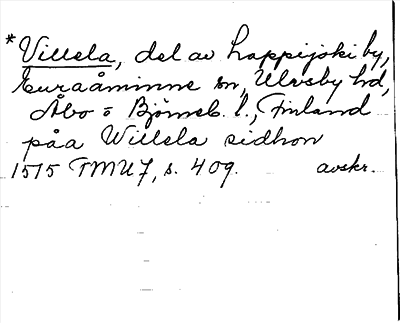 *Villela, del av Lappijoki by,
Euraåminne sn, Ulvsby hd,
Åbo o Björneb. l., Finland
påa Willela sidhon
1515 FMU 7, s. 409. avskr.